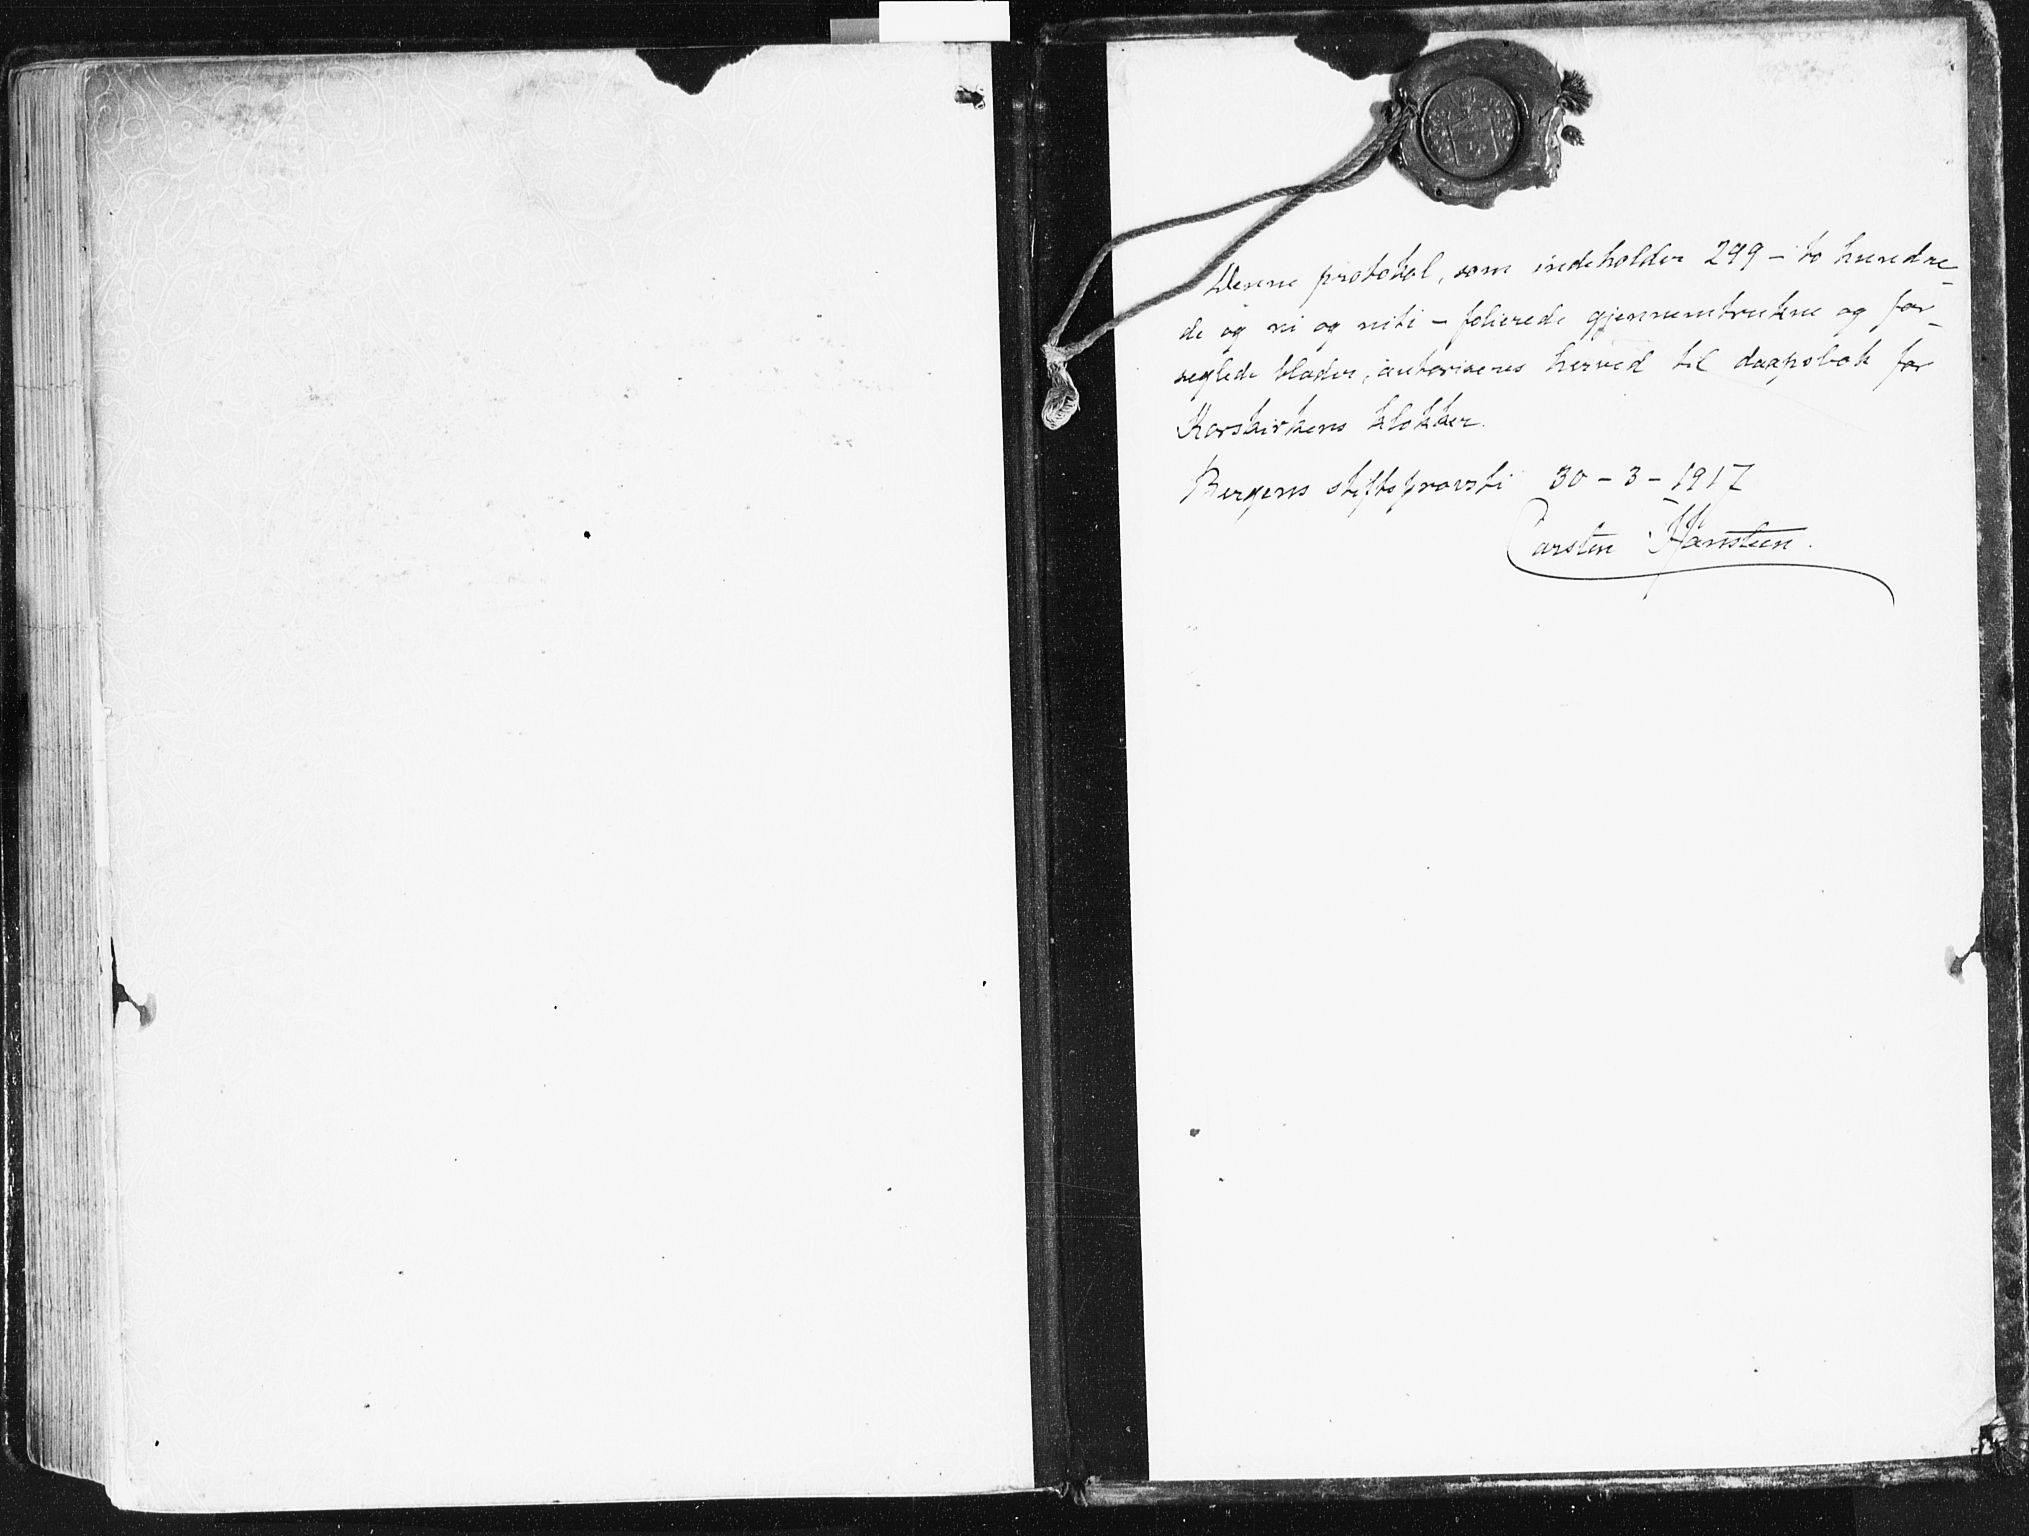 Denne protokol, som indeholder 299 – to hundre-
de og ni og niti – folierede gjennemtrukne og for-
seglede blader, autoriseres herved til daapsbok for
Korskirkens klokker.
Bergens stiftsprovsti 30 – 3 – 1917
Carsten Hansteen.